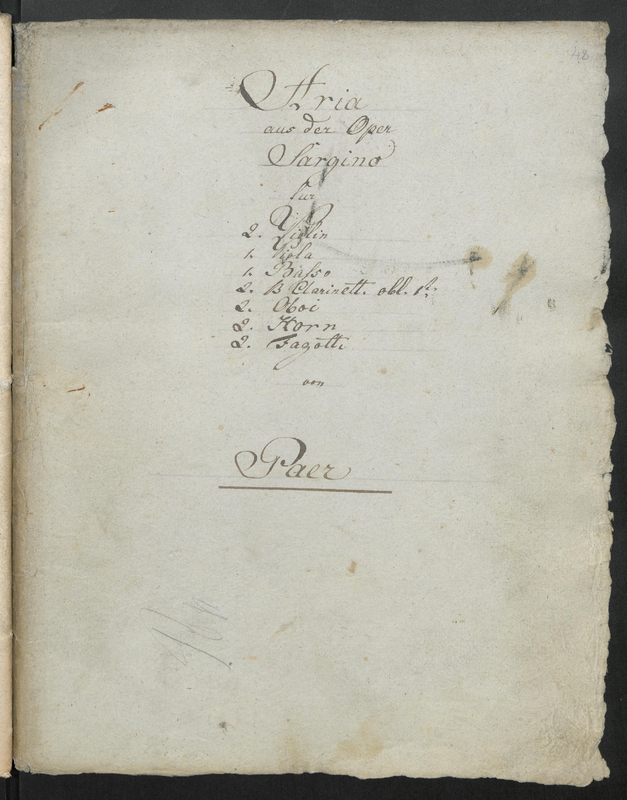 48
Aria
aus der Oper
Sargino
für
2. Violin
1. Viola
1. Basso
2. B Clarinett. obl. 1º
2. Oboi
2. Horn
2. Fagotti
von
Paer